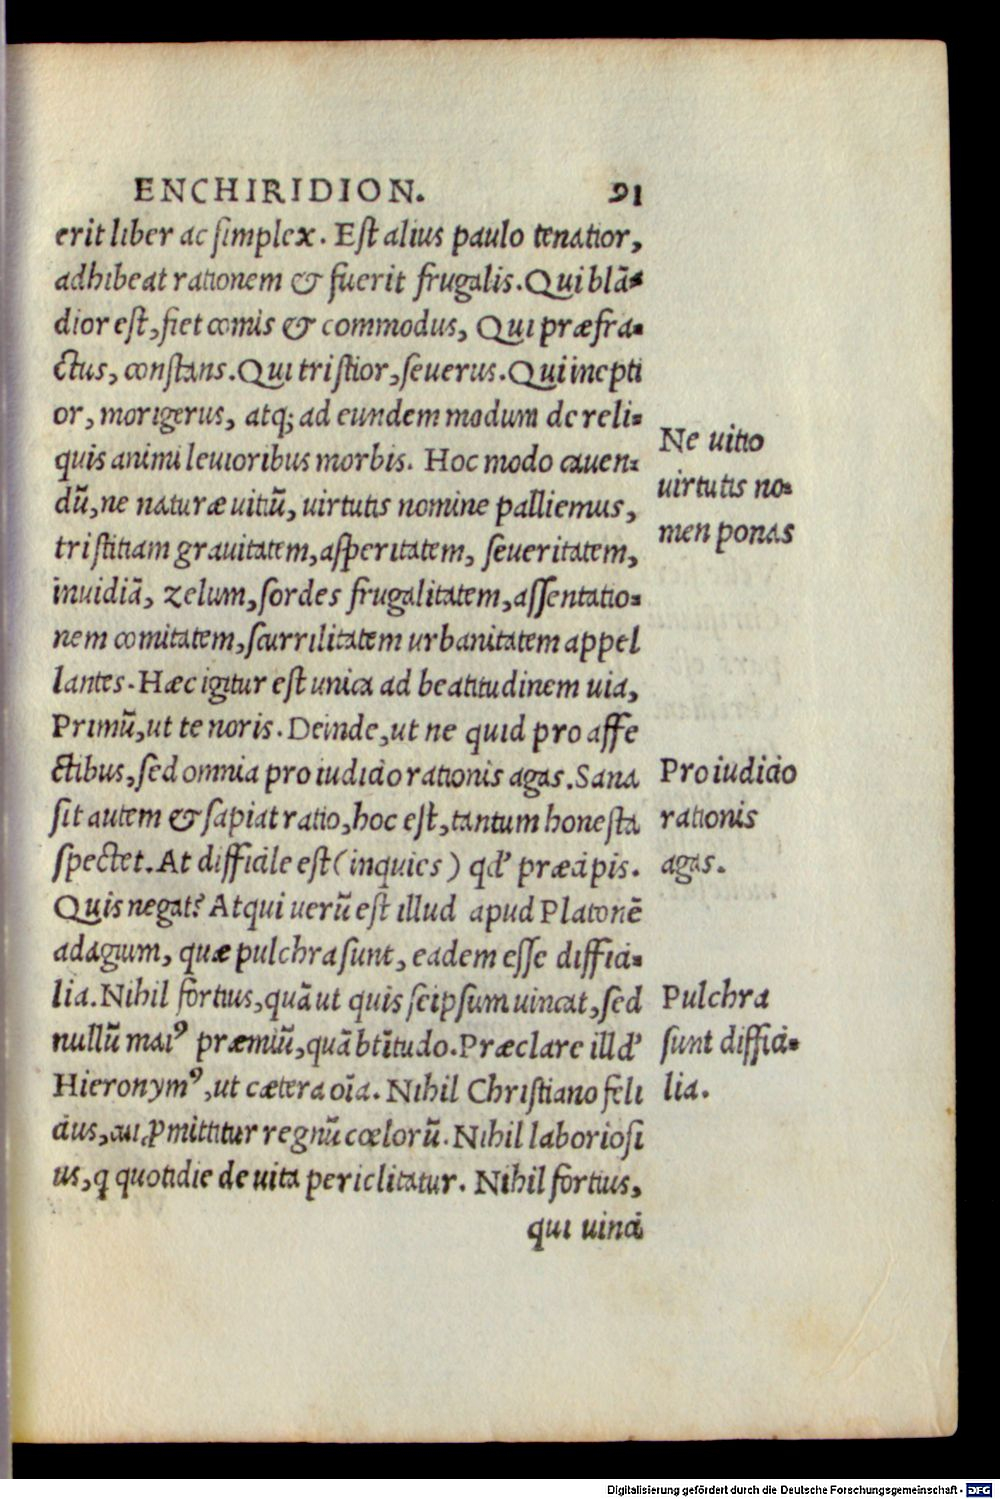 ENCHIRIDION. 91
erit liber ac simplex. Est alius paulo tenatior,
adhibeat rationem & fuerit frugalis. Qui blã-
dior est, fiet comis & commodus, Qui præfra-
ctus, constans. Qui tristior, seuerus. Qui inepti
or, morigerus, atq; ad eundem modum de reli-
quis animi leuioribus morbis. Hoc modo cauen-
dũ, ne naturæ uitiũ, uirtutis nomine palliemus,
tristitiam grauitatem, asperitatem, seueritatem,
inuidiã, zelum, sordes frugalitatem, assentatio-
nem comitatem, scurrilitatem urbanitatem appel
lantes. Hæc igitur est unica ad beatitudinem uia,
Primũ, ut te noris. Deinde, ut ne quid pro affe
ctibus, sed omnia pro iudicio rationis agas. Sana
sit autem & sapiat ratio, hoc est, tantum honesta
spectet. At difficile est (inquies) qd' præcipis.
Quis negat? Atqui uerũ est illud apud Platonẽ
adagium, quæ pulchra sunt, eadem esse diffici-
lia. Nihil fortius, quã ut quis seipsum uincat, sed
nullũ maiꝰ præmiũ, quã btĩtudo. Præclare illd'
Hieronymꝰ, ut cætera oĩa. Nihil Christiano feli
cius, cui ꝓmittitur regnũ cœlorũ. Nihil laboriosi
us, q quotidie de uita periclitatur. Nihil fortius,
qui uinci
Ne uitio
uirtutis no-
men ponas
Pro iudicio
rationis
agas.
Pulchra
sunt diffici-
lia.
Digitalisierung gefördert durch die Deutsche Forschungsgemeinschaft - DFG